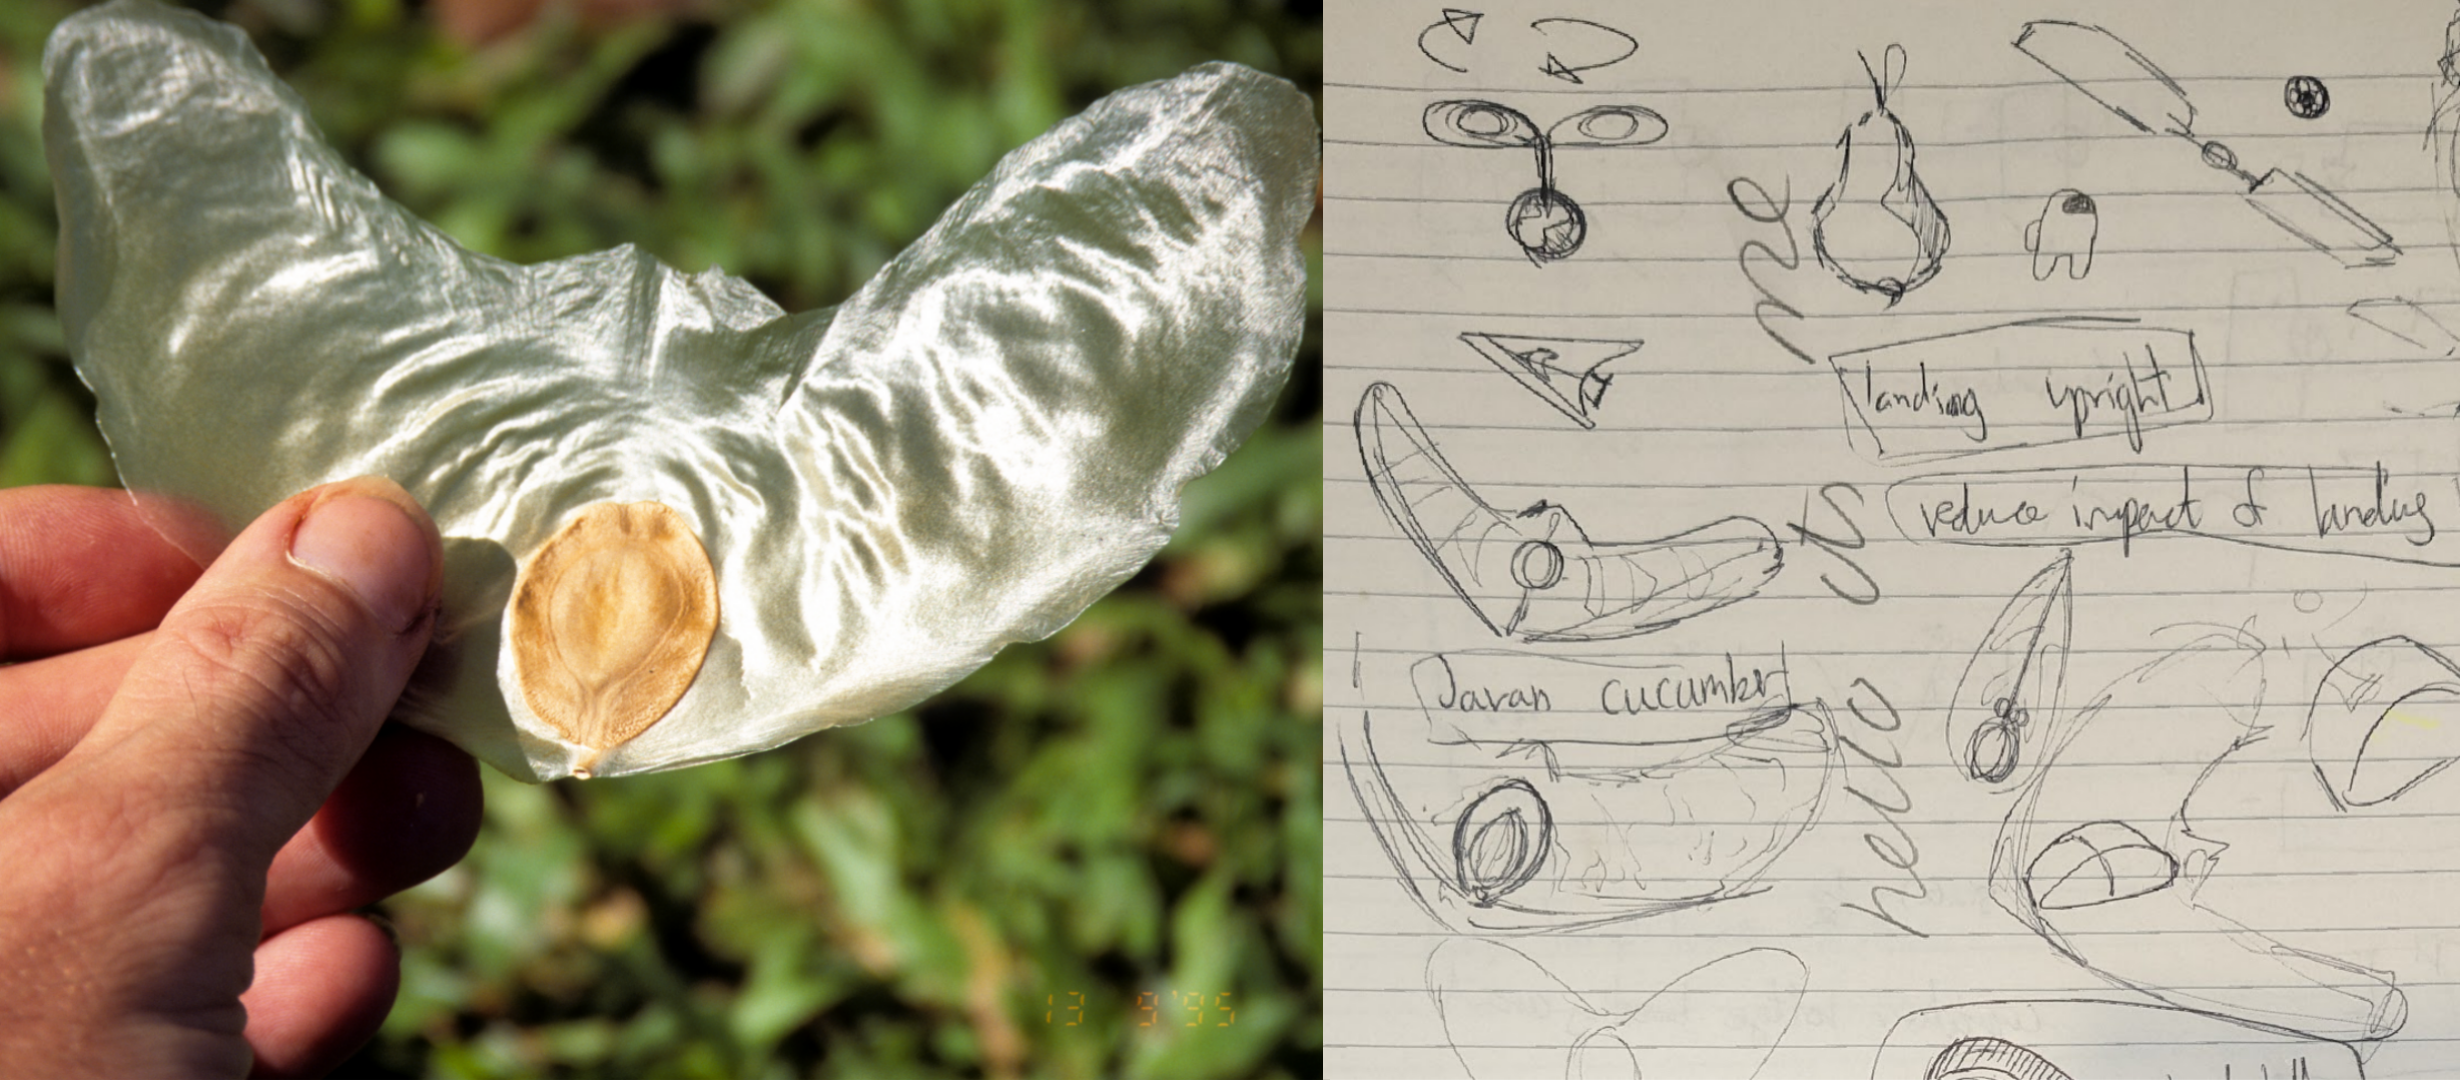 13 9'95
me
landing upright
reduce impact of landing
its
Javan cucumber
hello